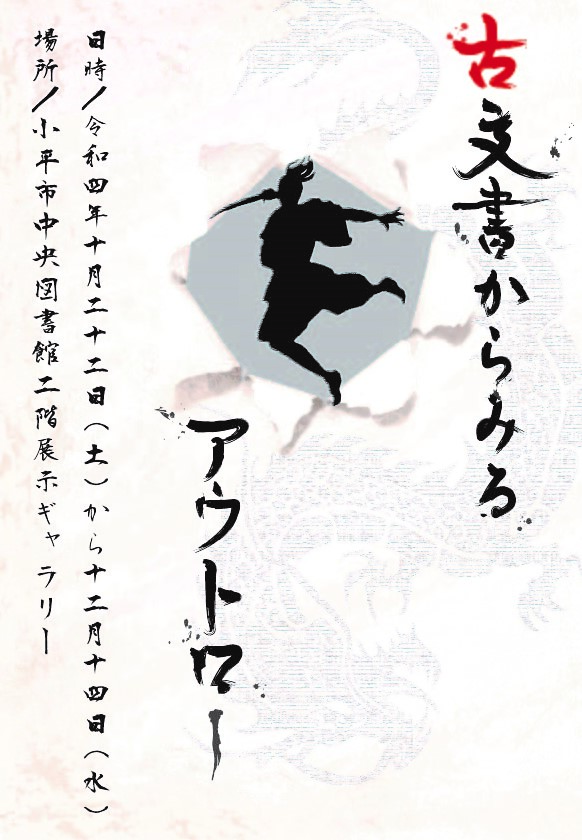 古文書からみる
アウトロー
日時/令和四年十月二十二日(土)から十二月十四日(水)
場所/小平市中央図書館二階展示ギャラリー